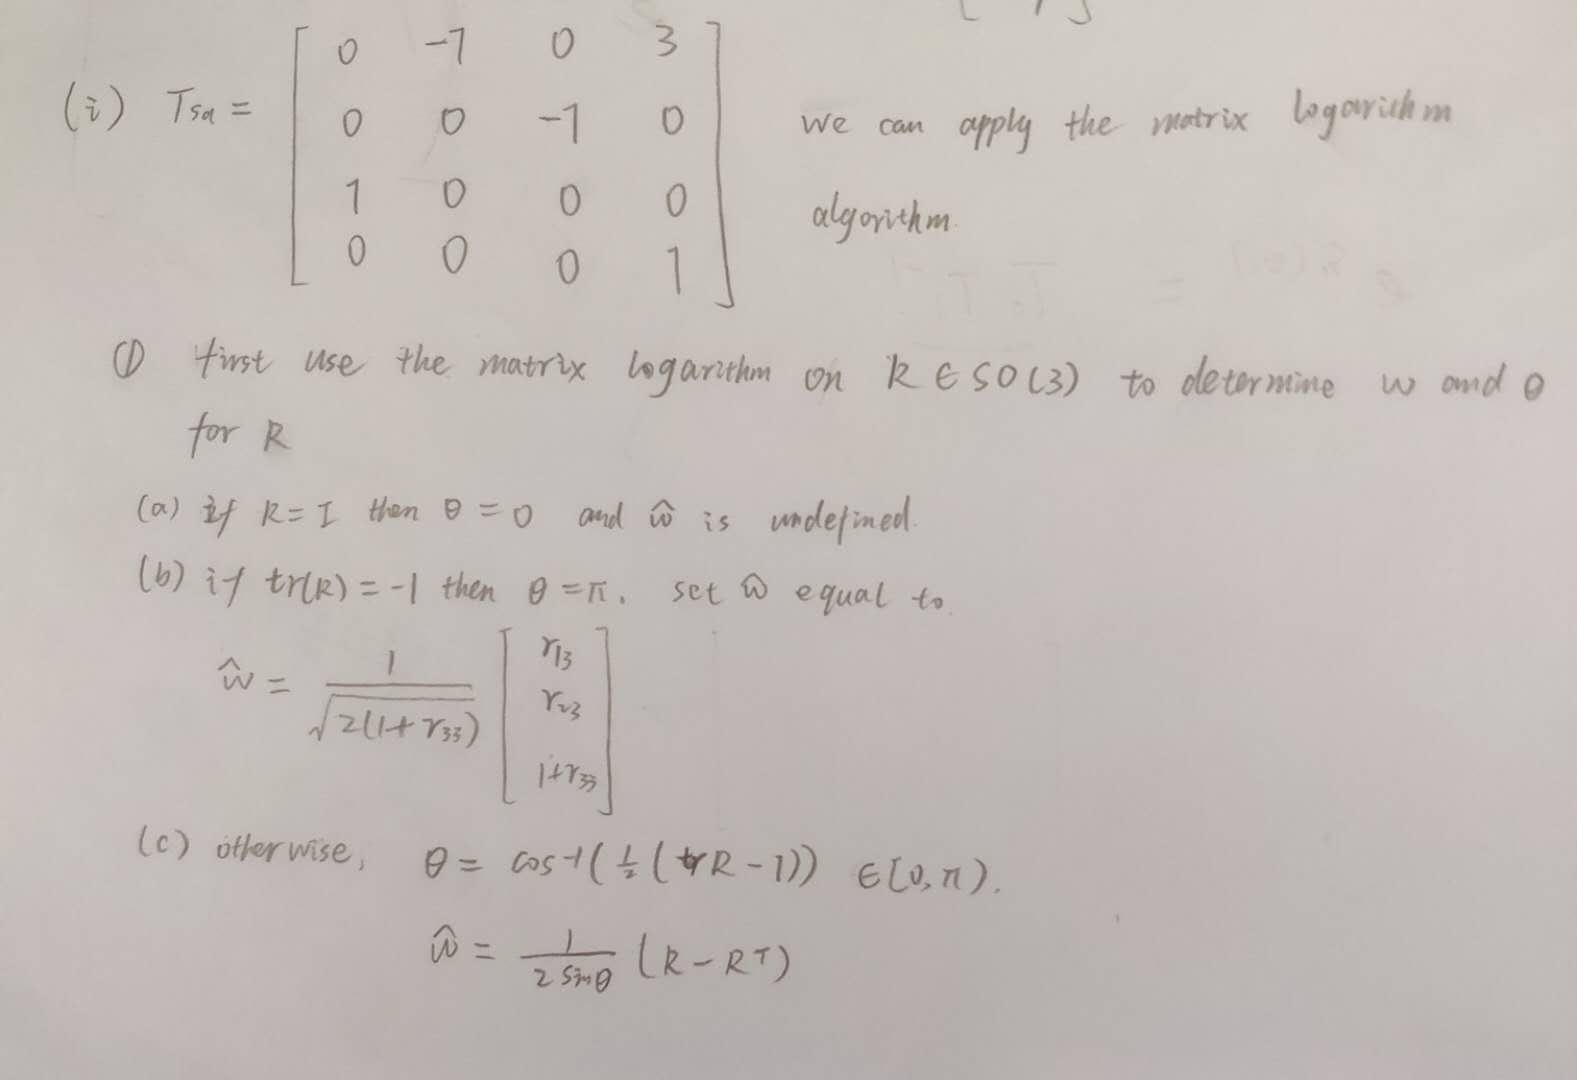 (i) Tsa = [ 0 -1 0 3
0 0 -1 0
1 0 0 0
0 0 0 1 ]
we can apply the matrix logarithm
algorithm.
① first use the matrix logarithm on R ∈ SO(3) to determine w and θ
for R
(a) if R = I then θ = 0 and ŵ is undefined.
(b) if tr(R) = -1 then θ = π. set ŵ equal to
ŵ = 1/√(2(1+r33)) [ r13
r23
1+r33 ]
(c) otherwise, θ = cos-1(½(trR-1)) ∈ [0,π).
ŵ = 1/(2 sinθ) (R-RT)